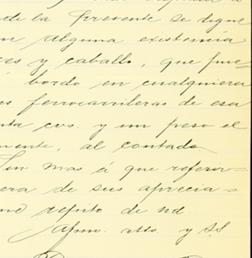 de la presente se digne
alguna existencia
es y caballo, que pue-
bordo en cualquiera
ferrocarrileras de esa
ta cvs. y un peso el
mente, al contado.
Sin mas á que referir-
era de sus aprecia-
me repito de Ud.
Afmo. atto. y S.S.